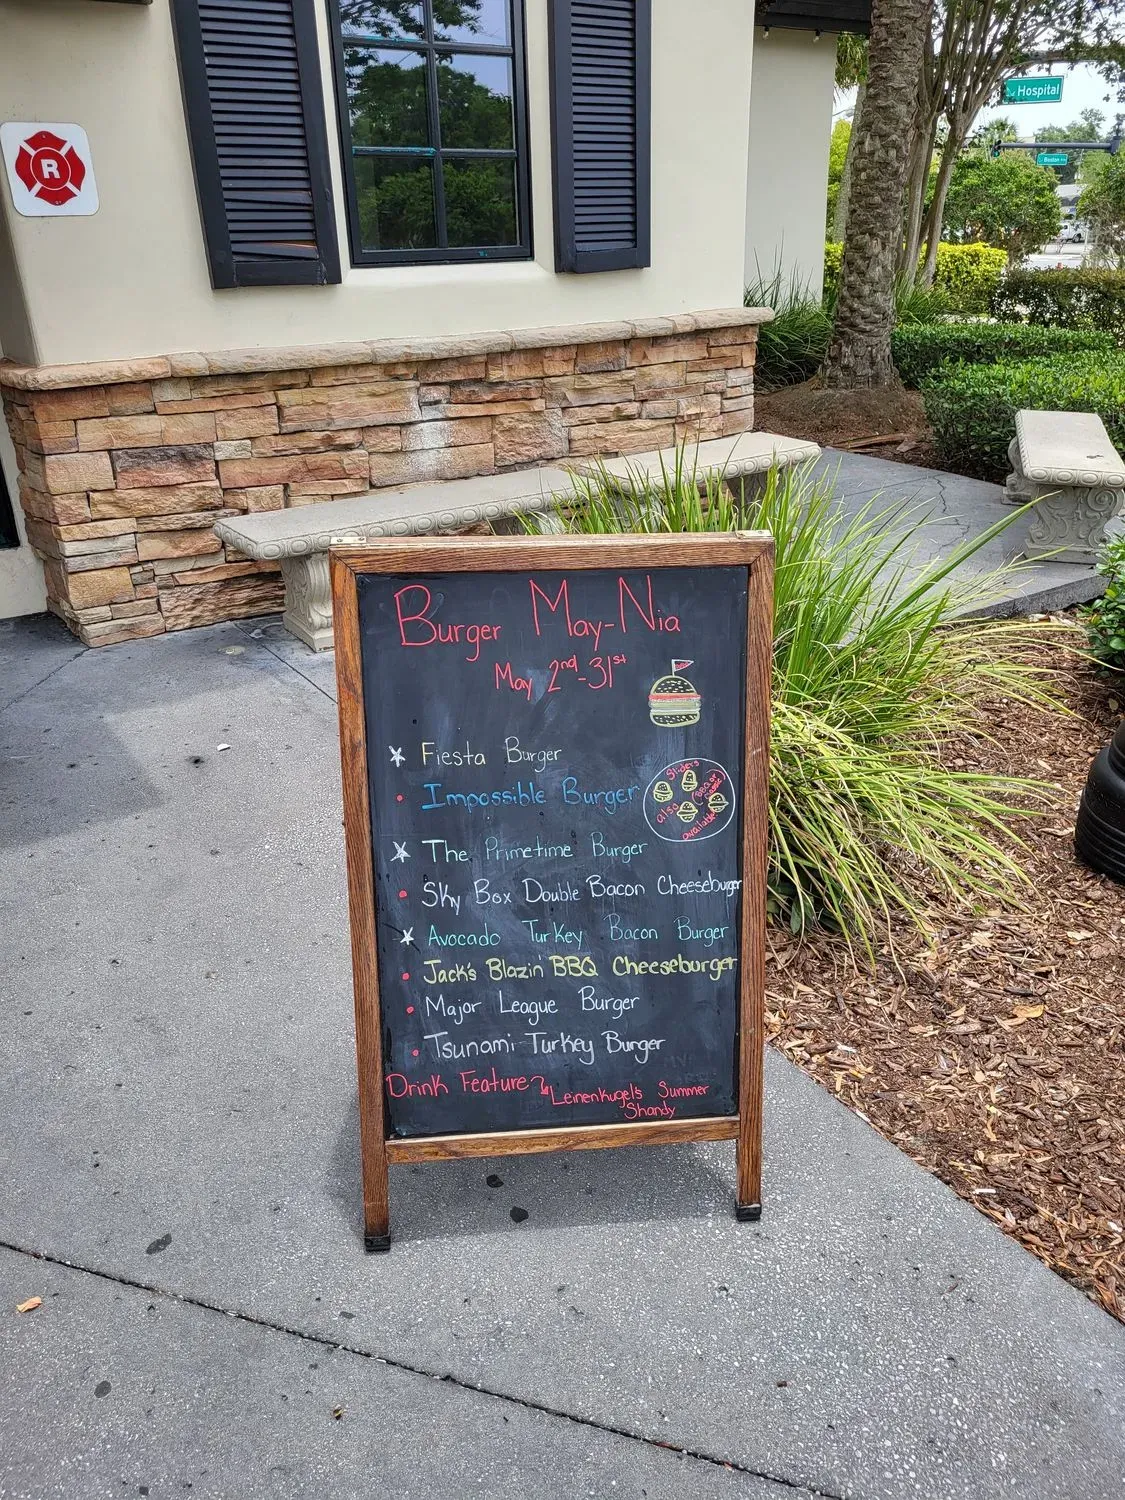 R
Hospital
Boston
Burger May-Nia
May 2nd-31st
Fiesta Burger
Impossible Burger
Sliders
BBQ or
also
available
The Primetime Burger
Sky Box Double Bacon Cheeseburger
Avocado Turkey Bacon Burger
Jack's Blazin' BBQ Cheeseburger
Major League Burger
Tsunami Turkey Burger
Drink Feature
Leinenkugel's Summer
Shandy